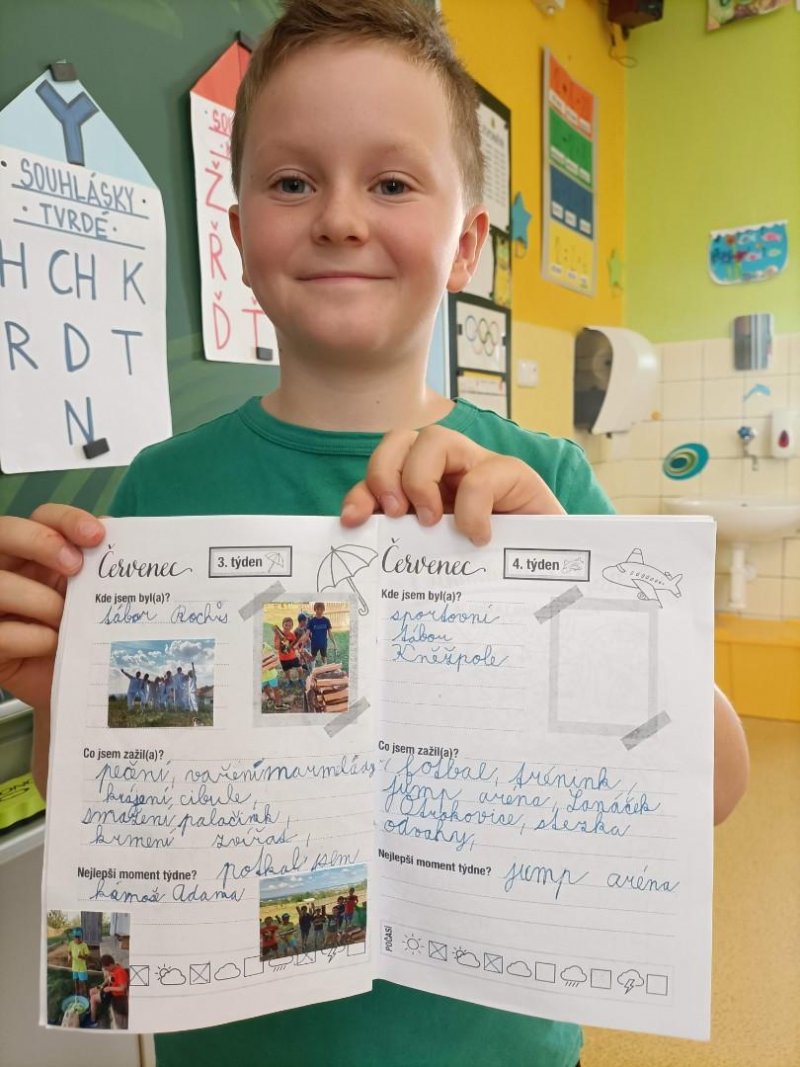 Y
SOUHLÁSKY
TVRDÉ
H CH K
R D T
N
Ž
Ř
Ď Ť
Červenec
3. týden
Kde jsem byl(a)?
tábor Rochus
Co jsem zažil(a)?
pečení, vaření marmelády
krájení, cibule,
smažení palačinek,
krmení zvířat,
Nejlepší moment týdne? potkal jsem
kámoše Adama
Červenec
4. týden
Kde jsem byl(a)?
sportovní
tábor
Kněžpole
Co jsem zažil(a)?
fotbal, trénink,
jump aréna, Lanáček
Otrokovice, stezka
odvahy,
Nejlepší moment týdne? jump aréna
POČASÍ